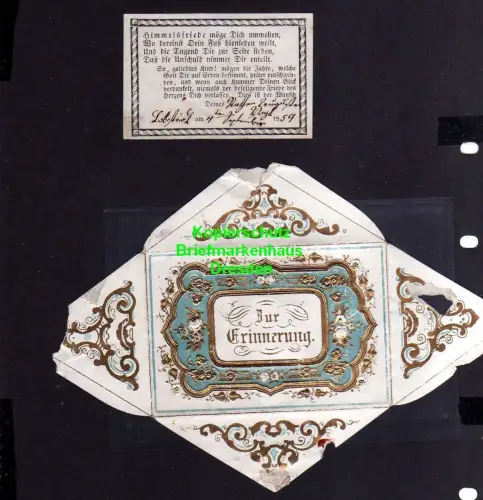 Himmelsfriede möge Dich umwehen,
Wo dereinst Dein Fuß hienieden weilt,
Und die Tugend Dir zur Seite stehen,
Daß die Unschuld nimmer Dir enteilt.
So, geliebtes Kind! mögen die Jahre, welche
Gott Dir auf Erden bestimmt, heiter entschwin-
den, und wenn auch Kummer Deinen Blick
verdunkelt, niemals der beseligende Friede des
Herzens Dich verlassen. Dies ist der Wunsch
Deines
am 4 September 1859
Kopierschutz
Briefmarkenhaus
Dresden
Zur
Erinnerung.